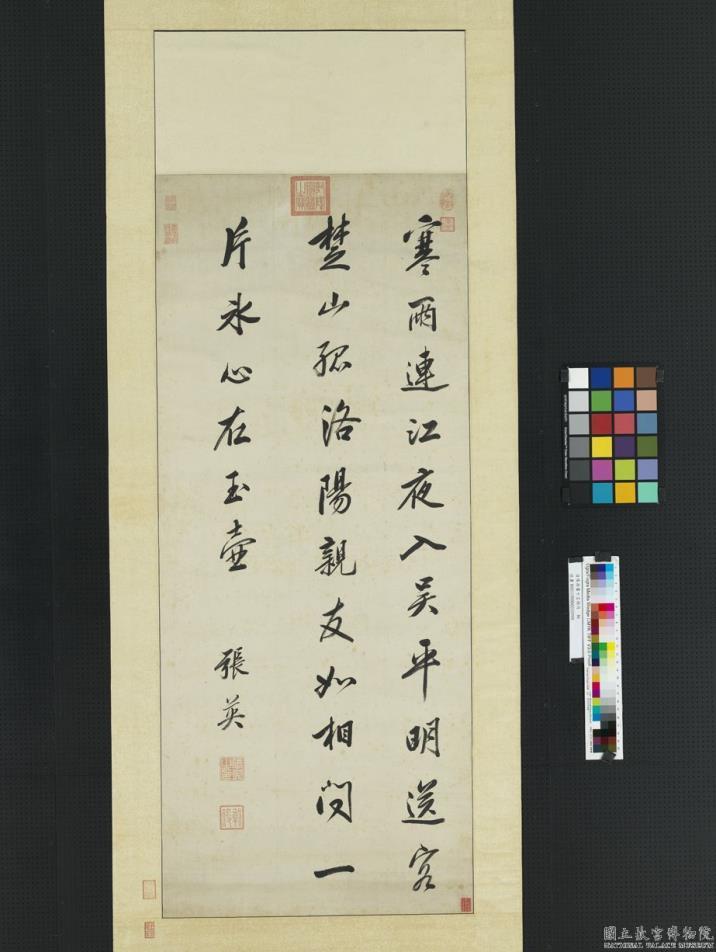 寒雨連江夜入吴平明送客
楚山孤洛陽親友如相问一
片氷心在玉壷
張英
國立故宮博物院
NATIONAL PALACE MUSEUM